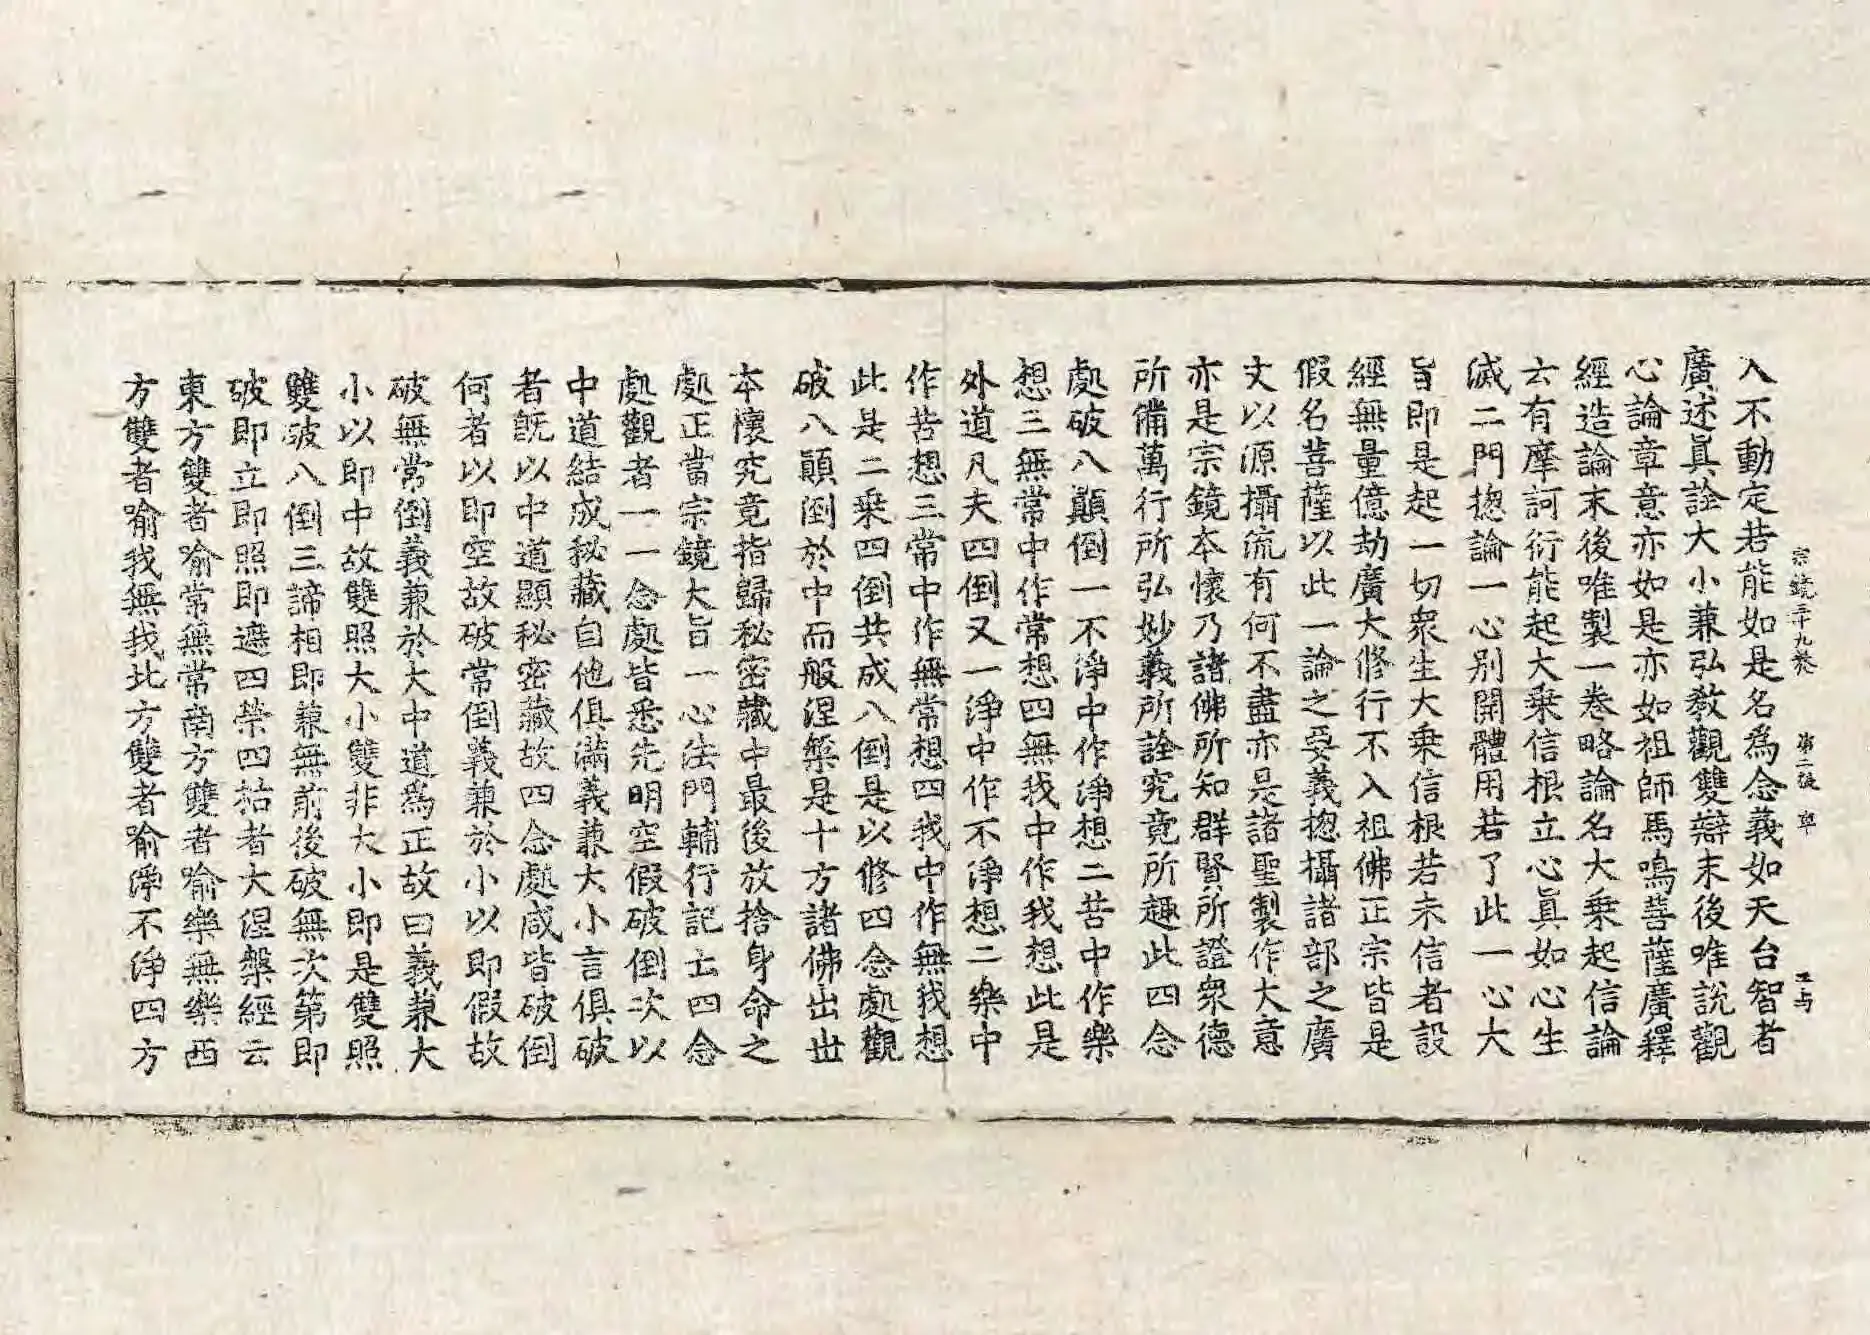 宗鏡三十九卷 第二張 郢
王与
入不動定若能如是名爲念義如天台智者
廣述眞詮大小兼弘敎觀雙辯末後唯說觀
心論章意亦如是亦如祖師馬鳴菩薩廣釋
經造論末後唯製一卷略論名大乗起信論
云有摩訶衍能起大乗信根立心眞如心生
滅二門揔論一心別開體用若了此一心大
旨即是起一切衆生大乗信根若未信者設
經無量億劫廣大修行不入祖佛正宗皆是
假名菩薩以此一論之妄義揔攝諸部之廣
文以源攝流有何不盡亦是諸聖製作大意
亦是宗鏡本懷乃諸佛所知群賢所證衆德
所備萬行所弘妙義所詮究竟所趣此四念
處破八顚倒一不淨中作淨想二苦中作樂
想三無常中作常想四無我中作我想此是
外道凡夫四倒又一淨中作不淨想二樂中
作苦想三常中作無常想四我中作無我想
此是二乗四倒共成八倒是以修四念處觀
破八顚倒於中而般涅槃是十方諸佛出世
本懷究竟指歸秘密藏中最後放捨身命之
處正當宗鏡大旨一心法門輔行記云四念
處觀者一一念處皆悉先明空假破倒次以
中道結成秘藏自他俱滿義兼大小言俱破
者旣以中道顯秘密藏故四念處咸皆破倒
何者以即空故破常倒義兼於小以即假故
破無常倒義兼於大中道爲正故曰義兼大
小以即中故雙照大小雙非大小即是雙照
雙破八倒三諦相即兼無前後破無次第即
破即立即照即遮四榮四枯者大涅槃經云
東方雙者喻常無常南方雙者喻樂無樂西
方雙者喻我無我北方雙者喻淨不淨四方